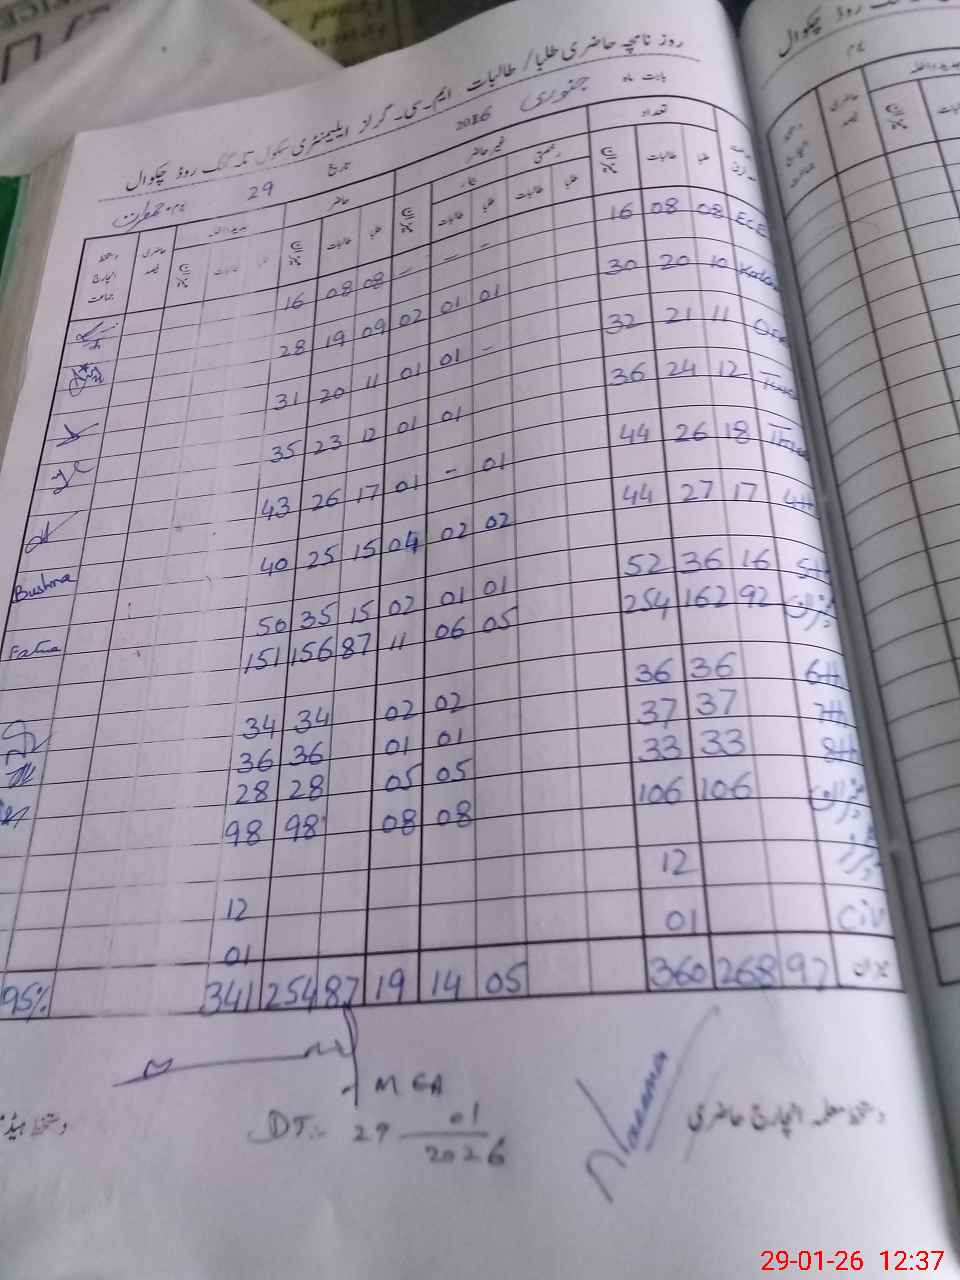 روزنامچہ حاضری طلبا / طالبات ایم۔سی۔ گرلز ایلیمنٹری سکول تلہ گنگ روڈ چکوال
بابت ماہ جنوری 2016 تاریخ 29 یوم جمعرات
تعداد غیر حاضر حاضر جدید داخلہ حاضری فیصد دستخط انچارج جماعت
رخصتی
طلبا طالبات میزان طلبا طالبات طلبا طالبات میزان طلبا طالبات میزان طلبا طالبات میزان
ECE 08 08 16 - - - 08 08 16
10 20 30 01 01 02 09 19 28
11 21 32 - 01 01 11 20 31
12 24 36 01 01 12 23 35
18 26 44 01 - 01 17 26 43
4th 17 27 44 02 02 04 15 25 40 Bushra
5th 16 36 52 01 01 02 15 35 50
میزان 92 162 254 05 06 11 87 156 151
6th 36 36 02 02 34 34
7th 37 37 01 01 36 36
8th 33 33 05 05 28 28
میزان 106 106 08 08 98 98
12 12
Civ 01 01
میزان 97 268 360 05 14 19 87 254 341 95%
دستخط معلمہ انچارج حاضری
Naeema
MEA
DT:- 29 01
2026
دستخط ہیڈ
29-01-26 12:37